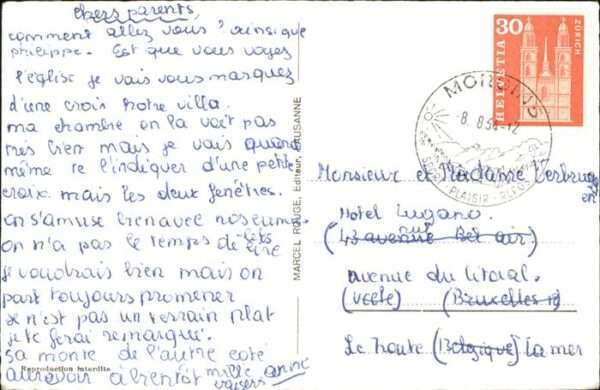 chers parents,
comment allez vous ainsi que
philippe. Est que vous voyez
l'église je vais vous marquez
d'une crois notre villa.
ma chambre on la voit pas
très bien mais je vais quand
même re l'indiquer d'une petite
croix. mais les deux fenêtres.
on s'amuse bien avec nos
on n'a pas le temps de lire
je voudrais bien mais on
part toujours promener
se n'est pas un terrain plat
je te ferai remarque.
sa monte de l'autre coté
aurevoir à bientot mille
baisers anne
Reproduction interdite
MARCEL ROUGE, Editeur, LAUSANNE
30
HELVETIA
ZÜRICH
-8.8.58-12
PLAISIR - REPOS
Monsieur et Madame
Hotel Lugano.
(43 avenue Bel air)
avenue du litoral.
(Uccle) (Bruxelles 18)
Le Zoute (Belgique) la mer